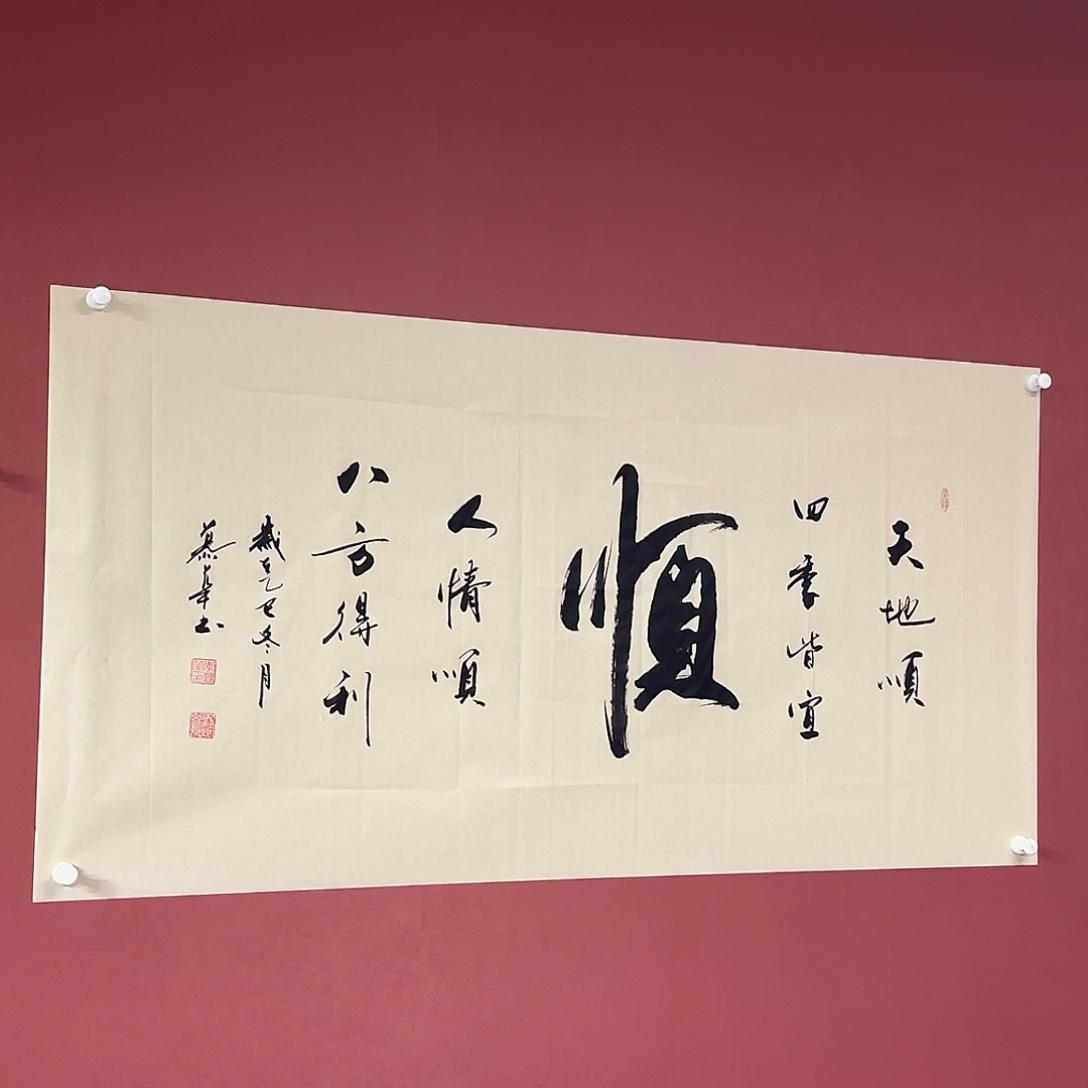 天地順
四季皆宜
順
人情順
八方得利
歲在乙巳冬月